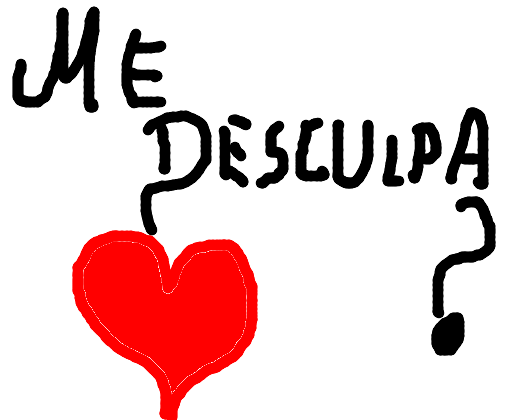 ME
DESCULPA
?